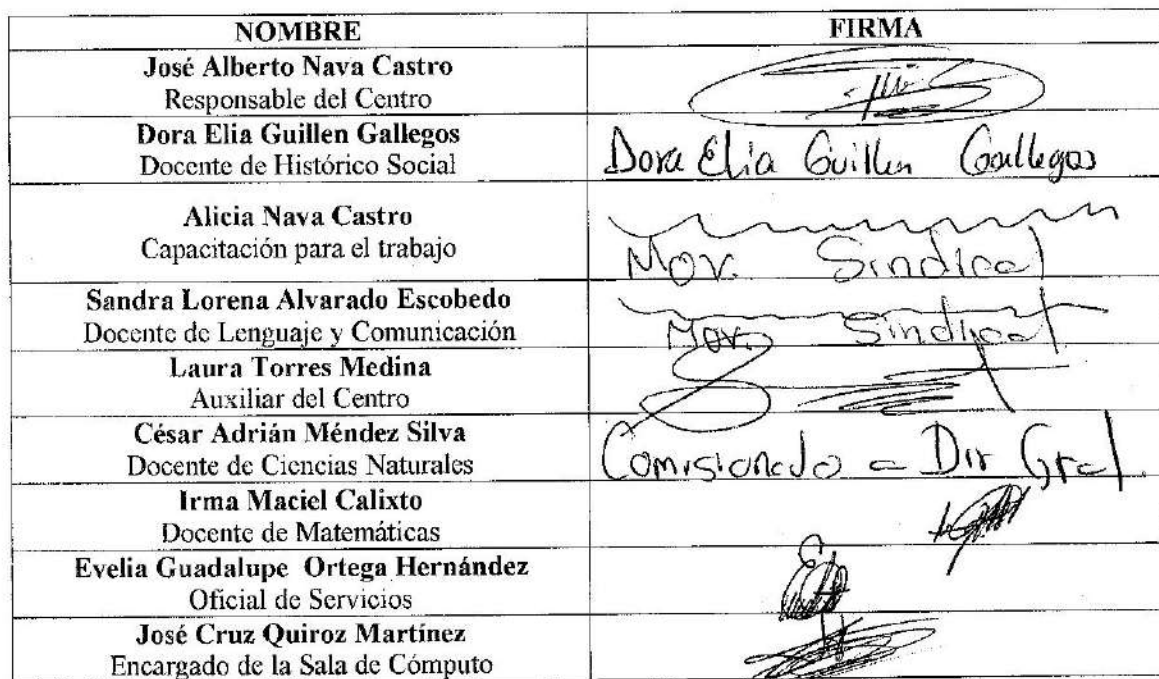 NOMBRE FIRMA
José Alberto Nava Castro
Responsable del Centro
Dora Elia Guillen Gallegos
Docente de Histórico Social
Dora Elia Guillen Gallegos
Alicia Nava Castro
Capacitación para el trabajo
Mov. Sindical
Sandra Lorena Alvarado Escobedo
Docente de Lenguaje y Comunicación
Mov. Sindical
Laura Torres Medina
Auxiliar del Centro
César Adrián Méndez Silva
Docente de Ciencias Naturales
Comisionado a Dir Gral.
Irma Maciel Calixto
Docente de Matemáticas
Evelia Guadalupe Ortega Hernández
Oficial de Servicios
José Cruz Quiroz Martínez
Encargado de la Sala de Cómputo